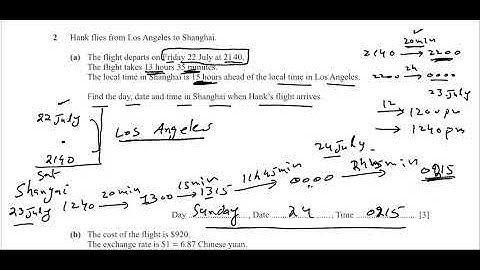 2 Hank flies from Los Angeles to Shanghai.
(a) The flight departs on Friday 22 July at 21 40.
The flight takes 13 hours 35 minutes.
The local time in Shanghai is 15 hours ahead of the local time in Los Angeles.
Find the day, date and time in Shanghai when Hank's flight arrives.
20min
2140 → 2200
2200 24 → 0000
23 July
12 → 1200pm
→ 1240pm
22 July
2140
Los Angeles
Sat
Shangai
23 July 1240 20min → 1300 15min → 1315 → 0000 → 0215
24 July
Day Sunday, Date 24, Time 0215 [3]
(b) The cost of the flight is $920.
The exchange rate is $1 = 6.87 Chinese yuan.